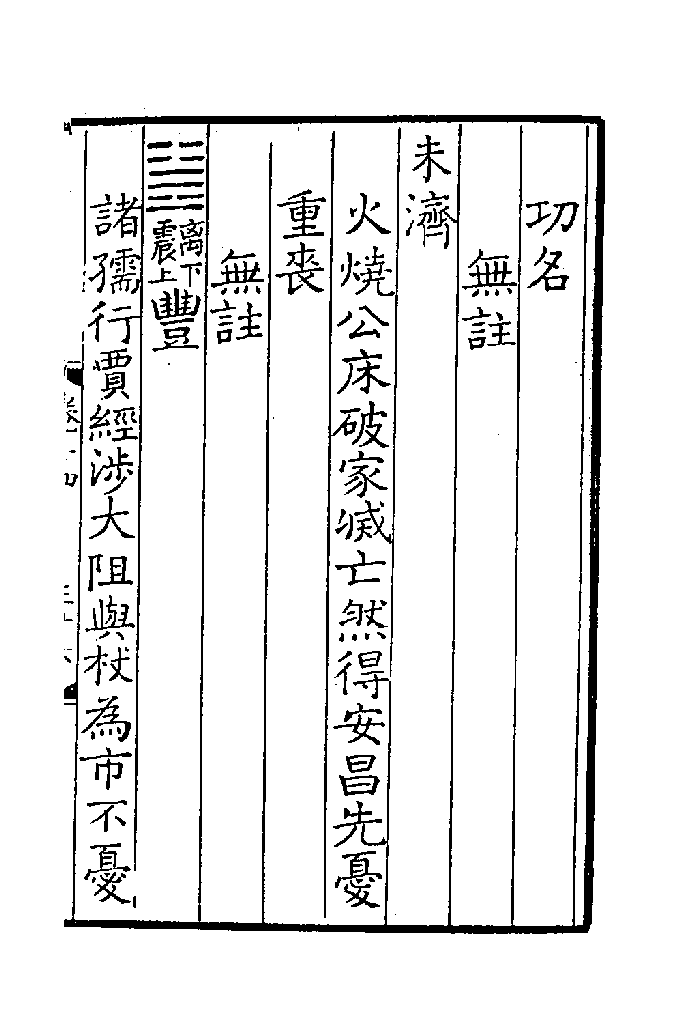 功名
無註
未濟
火燒公床破家滅亡然得安昌先憂
重喪
無註
離下震上豐
諸孺行賈經涉大阻與杖為市不憂